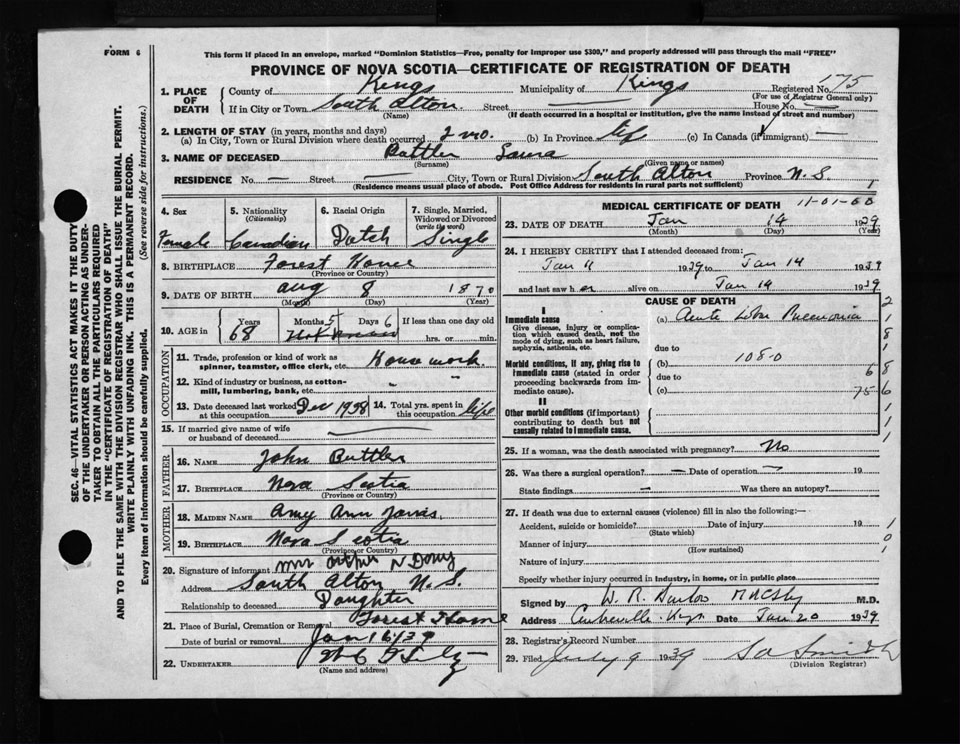 FORM 6
This form if placed in an envelope, marked "Dominion Statistics—Free, penalty for improper use $300," and properly addressed will pass through the mail "FREE"
PROVINCE OF NOVA SCOTIA—CERTIFICATE OF REGISTRATION OF DEATH
1. PLACE OF DEATH
County of Kings Municipality of Kings Registered No. 175
(For use of Registrar General only)
If in City or Town South Alton Street — House No. —
(Name) (If death occurred in a hospital or institution, give the name instead of street and number)
2. LENGTH OF STAY (in years, months and days)
(a) In City, Town or Rural Division where death occurred 2 mo. (b) In Province life (c) In Canada (if immigrant) —
3. NAME OF DECEASED Laura
(Surname) (Given name or names)
RESIDENCE No. — Street — City, Town or Rural Division South Alton Province N. S.
(Residence means usual place of abode. Post Office Address for residents in rural parts not sufficient) 1
4. Sex 5. Nationality (Citizenship) 6. Racial Origin 7. Single, Married, Widowed or Divorced (write the word)
Female Canadian Dutch Single
8. BIRTHPLACE Forest Home
(Province or Country)
9. DATE OF BIRTH Aug 8 1870
(Month) (Day) (Year)
10. AGE in Years Months Days If less than one day old
68 5 6 hrs. or min.
OCCUPATION
11. Trade, profession or kind of work as spinner, teamster, office clerk, etc. House work
12. Kind of industry or business, as cotton-mill, lumbering, bank, etc. - -
13. Date deceased last worked at this occupation Dec 1938 14. Total yrs. spent in this occupation life
15. If married give name of wife or husband of deceased —
FATHER
16. NAME John Buttler
17. BIRTHPLACE Nova Scotia
(Province or Country)
MOTHER
18. MAIDEN NAME Amy Ann
19. BIRTHPLACE Nova Scotia
(Province or Country)
20. Signature of informant Mrs
Address South Alton N. S.
Relationship to deceased Daughter
21. Place of Burial, Cremation or Removal Forest Home
Date of burial or removal Jan 16/39
22. UNDERTAKER
(Name and address)
MEDICAL CERTIFICATE OF DEATH
23. DATE OF DEATH Jan 14 1939
(Month) (Day) (Year)
24. I HEREBY CERTIFY that I attended deceased from:
Jan 11 1939 to Jan 14 1939
and last saw her alive on Jan 14 1939
CAUSE OF DEATH
I
Immediate cause
Give disease, injury or complication which caused death, not the mode of dying, such as heart failure, asphyxia, asthenia, etc.
(a) Acute Lobar Pneumonia
due to
Morbid conditions, if any, giving rise to immediate cause (stated in order proceeding backwards from immediate cause).
(b) 108-0
due to
(c)
II
Other morbid conditions (if important) contributing to death but not causally related to immediate cause.
25. If a woman, was the death associated with pregnancy? No
26. Was there a surgical operation? — Date of operation — 19
State findings — Was there an autopsy?
27. If death was due to external causes (violence) fill in also the following:—
Accident, suicide or homicide? Date of injury 19
(State which)
Manner of injury
(How sustained)
Nature of injury
Specify whether injury occurred in industry, in home, or in public place
Signed by M.D.
Address Date Jan 20 1939
28. Registrar's Record Number
29. Filed July 9 1939 S A Smith
(Division Registrar)
SEC. 46—VITAL STATISTICS ACT MAKES IT THE DUTY
OF THE UNDERTAKER OR PERSON ACTING AS UNDER-
TAKER TO OBTAIN ALL THE PARTICULARS REQUIRED
IN THE "CERTIFICATE OF REGISTRATION OF DEATH"
AND TO FILE THE SAME WITH THE DIVISION REGISTRAR WHO SHALL ISSUE THE BURIAL PERMIT.
WRITE PLAINLY WITH UNFADING INK. THIS IS A PERMANENT RECORD.
Every item of information should be carefully supplied. (See reverse side for instructions.)